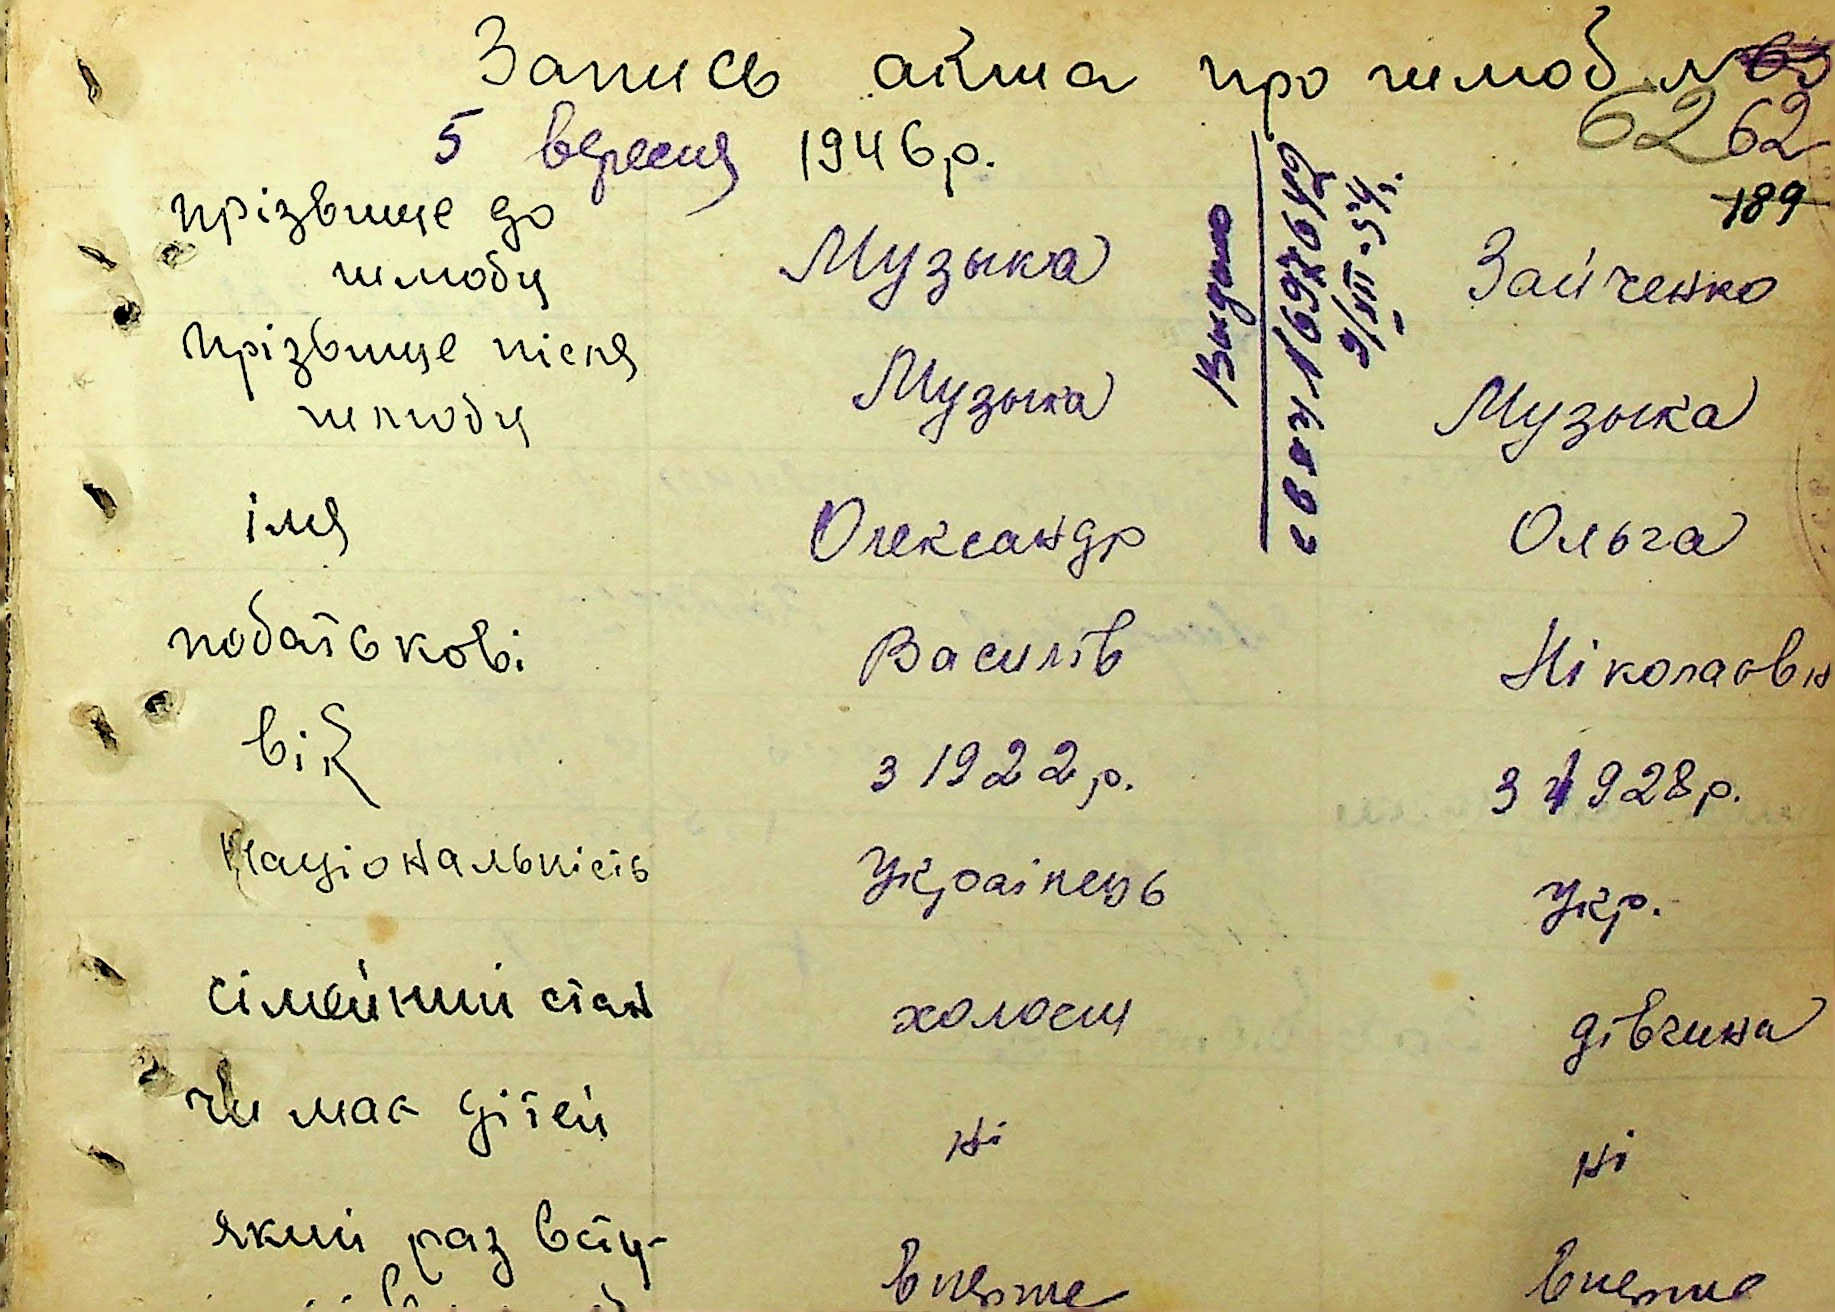 Запись акта про шлюб №
62 62
5 вересня 1946 р.
189
прізвище до
шлюбу Музыка Зайченко
прізвище після
шлюбу Музыка Музыка
імя Олександр Ольга
побатькові Василів Ніколаовн
вік з 1922 р. з 1928 р.
національність Украінець Укр.
сімейний стан холост дівчина
чи має дітей ні ні
який раз всту-
вперше вперше
Видано
1697642
9/VII-54г.